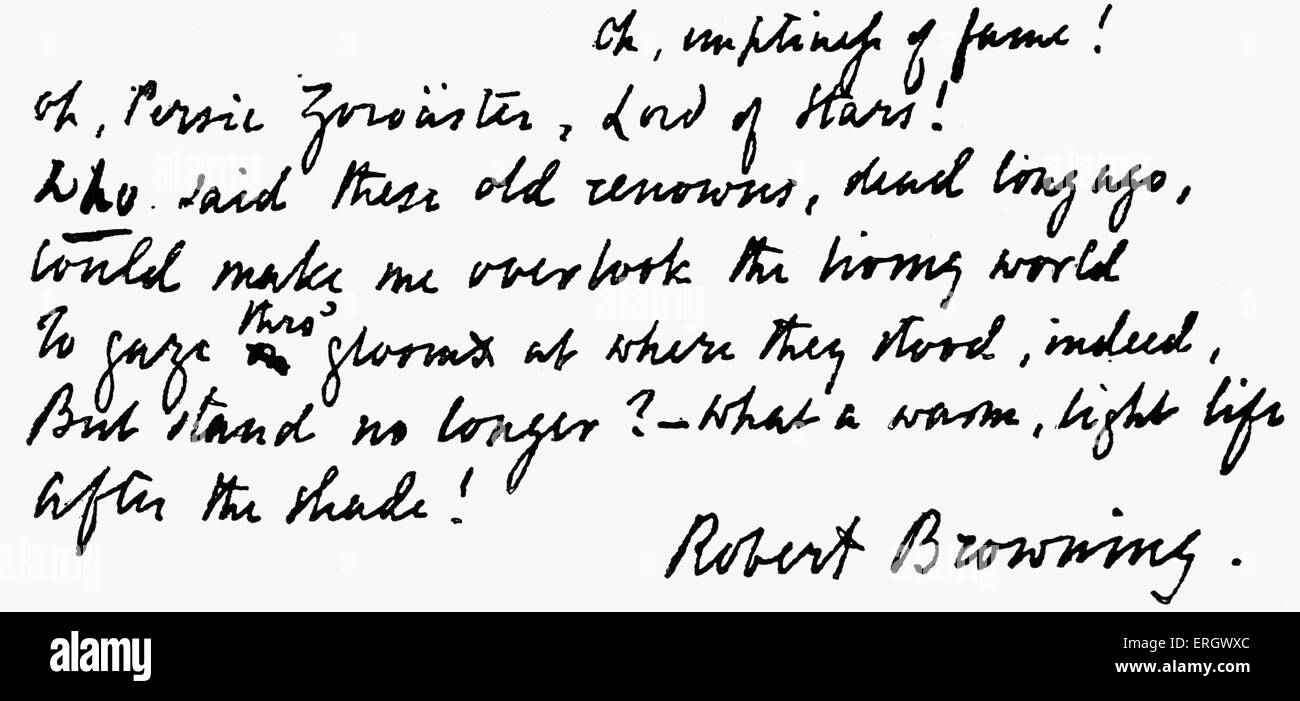 Oh, emptiness of fame!
Oh, Persic Zoroäster, Lord of Stars!
Who said these old renowns, dead long ago,
Could make me overlook the living world
To gaze thro' gloom at where they stood, indeed,
But stand no longer? – What a warm, light life
After the shade!
Robert Browning.
alamy
Image ID: ERGWXC
www.alamy.com